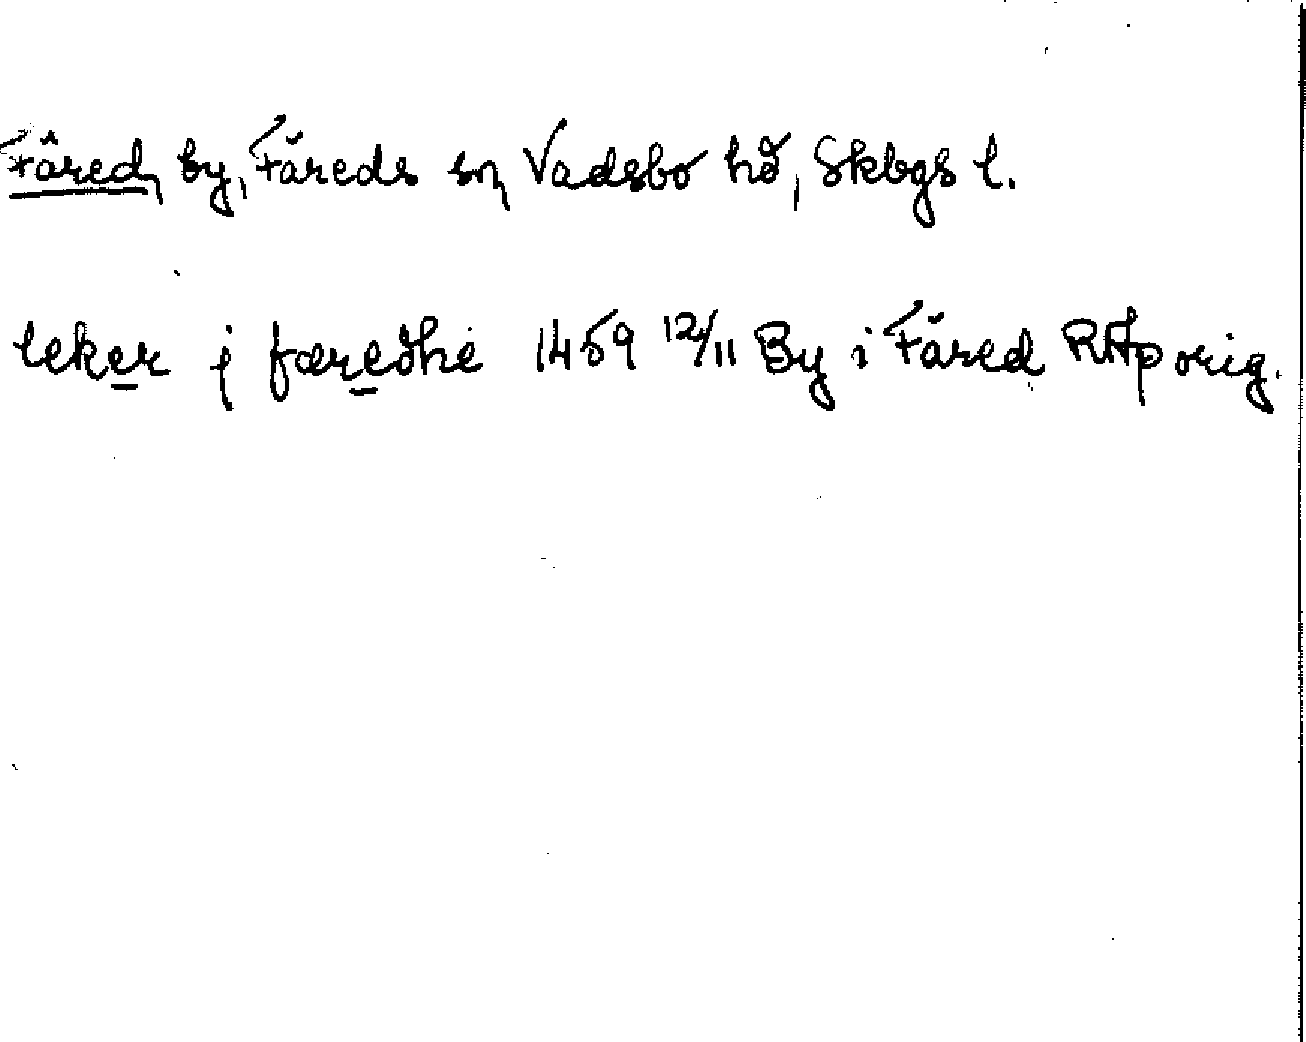 Färed, by, Färeds sn, Vadsbo hd, Skbgs l.
leker j færedhe 1459 12/11 By i Färed RAp orig.